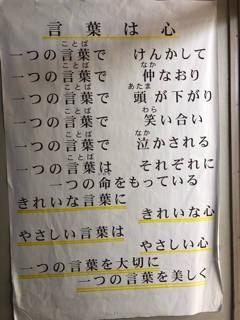 言葉は心
一つの言葉で けんかして
一つの言葉で 仲なおり
一つの言葉で 頭が下がり
一つの言葉で 笑い合い
一つの言葉で 泣かされる
一つの言葉は それぞれに
一つの命をもっている
きれいな言葉に
きれいな心
やさしい言葉は
やさしい心
一つの言葉を大切に
一つの言葉を美しく